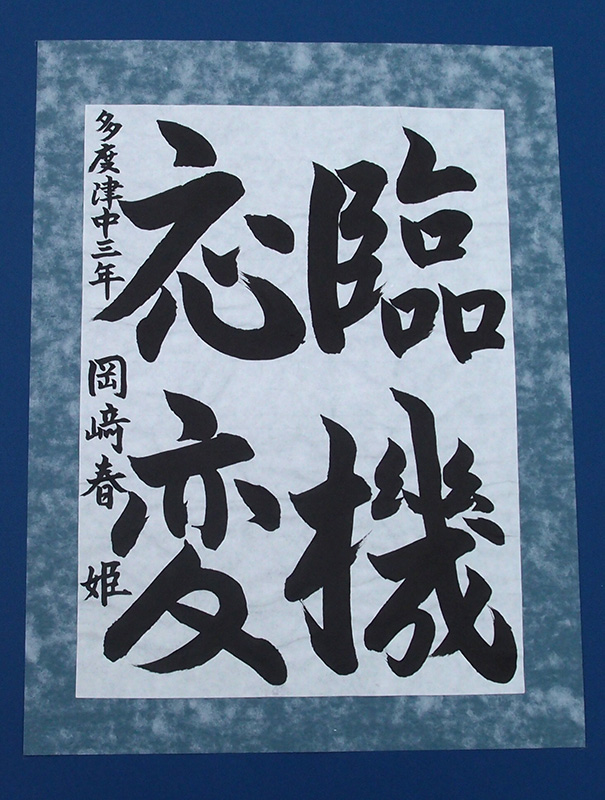 臨機
応変
多度津中三年 岡﨑春姫